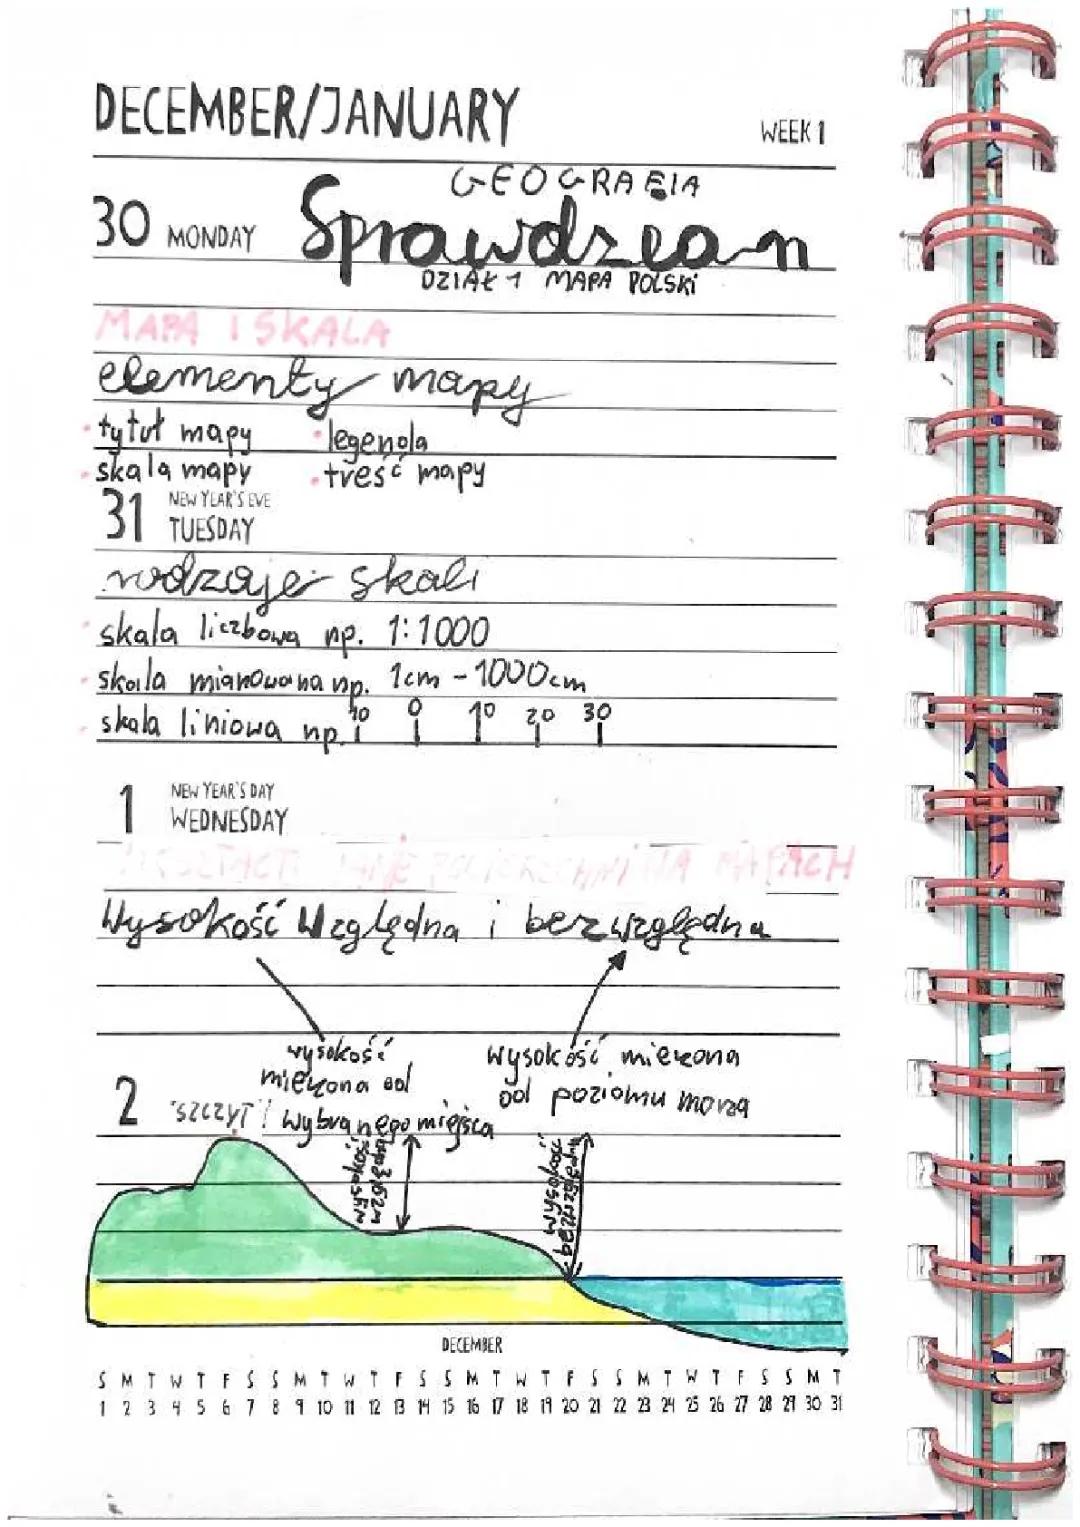 DECEMBER/JANUARY
WEEK 1
GEOGRAFIA
30 MONDAY Sprawdzian
DZIAŁ 1 MAPA POLSKI
MAPA I SKALA
elementy mapy
• tytuł mapy • legenda
• skala mapy • treść mapy
31 NEW YEAR'S EVE
TUESDAY
rodzaje skali
• skala liczbowa np. 1:1000
• skala mianowana np. 1cm - 1000cm
• skala liniowa np. 10 0 10 20 30
1 NEW YEAR'S DAY
WEDNESDAY
NA MAPACH
Wysokość względna i bezwzględna
wysokość
mierzona od
wybranego miejsca
wysokość mierzona
od poziomu morza
2 "szczyt"
wysokość
wysokość
DECEMBER
S M T W T F S S M T W T F S S M T W T F S S M T W T F S S M T
1 2 3 4 5 6 7 8 9 10 11 12 13 14 15 16 17 18 19 20 21 22 23 24 25 26 27 28 29 30 31